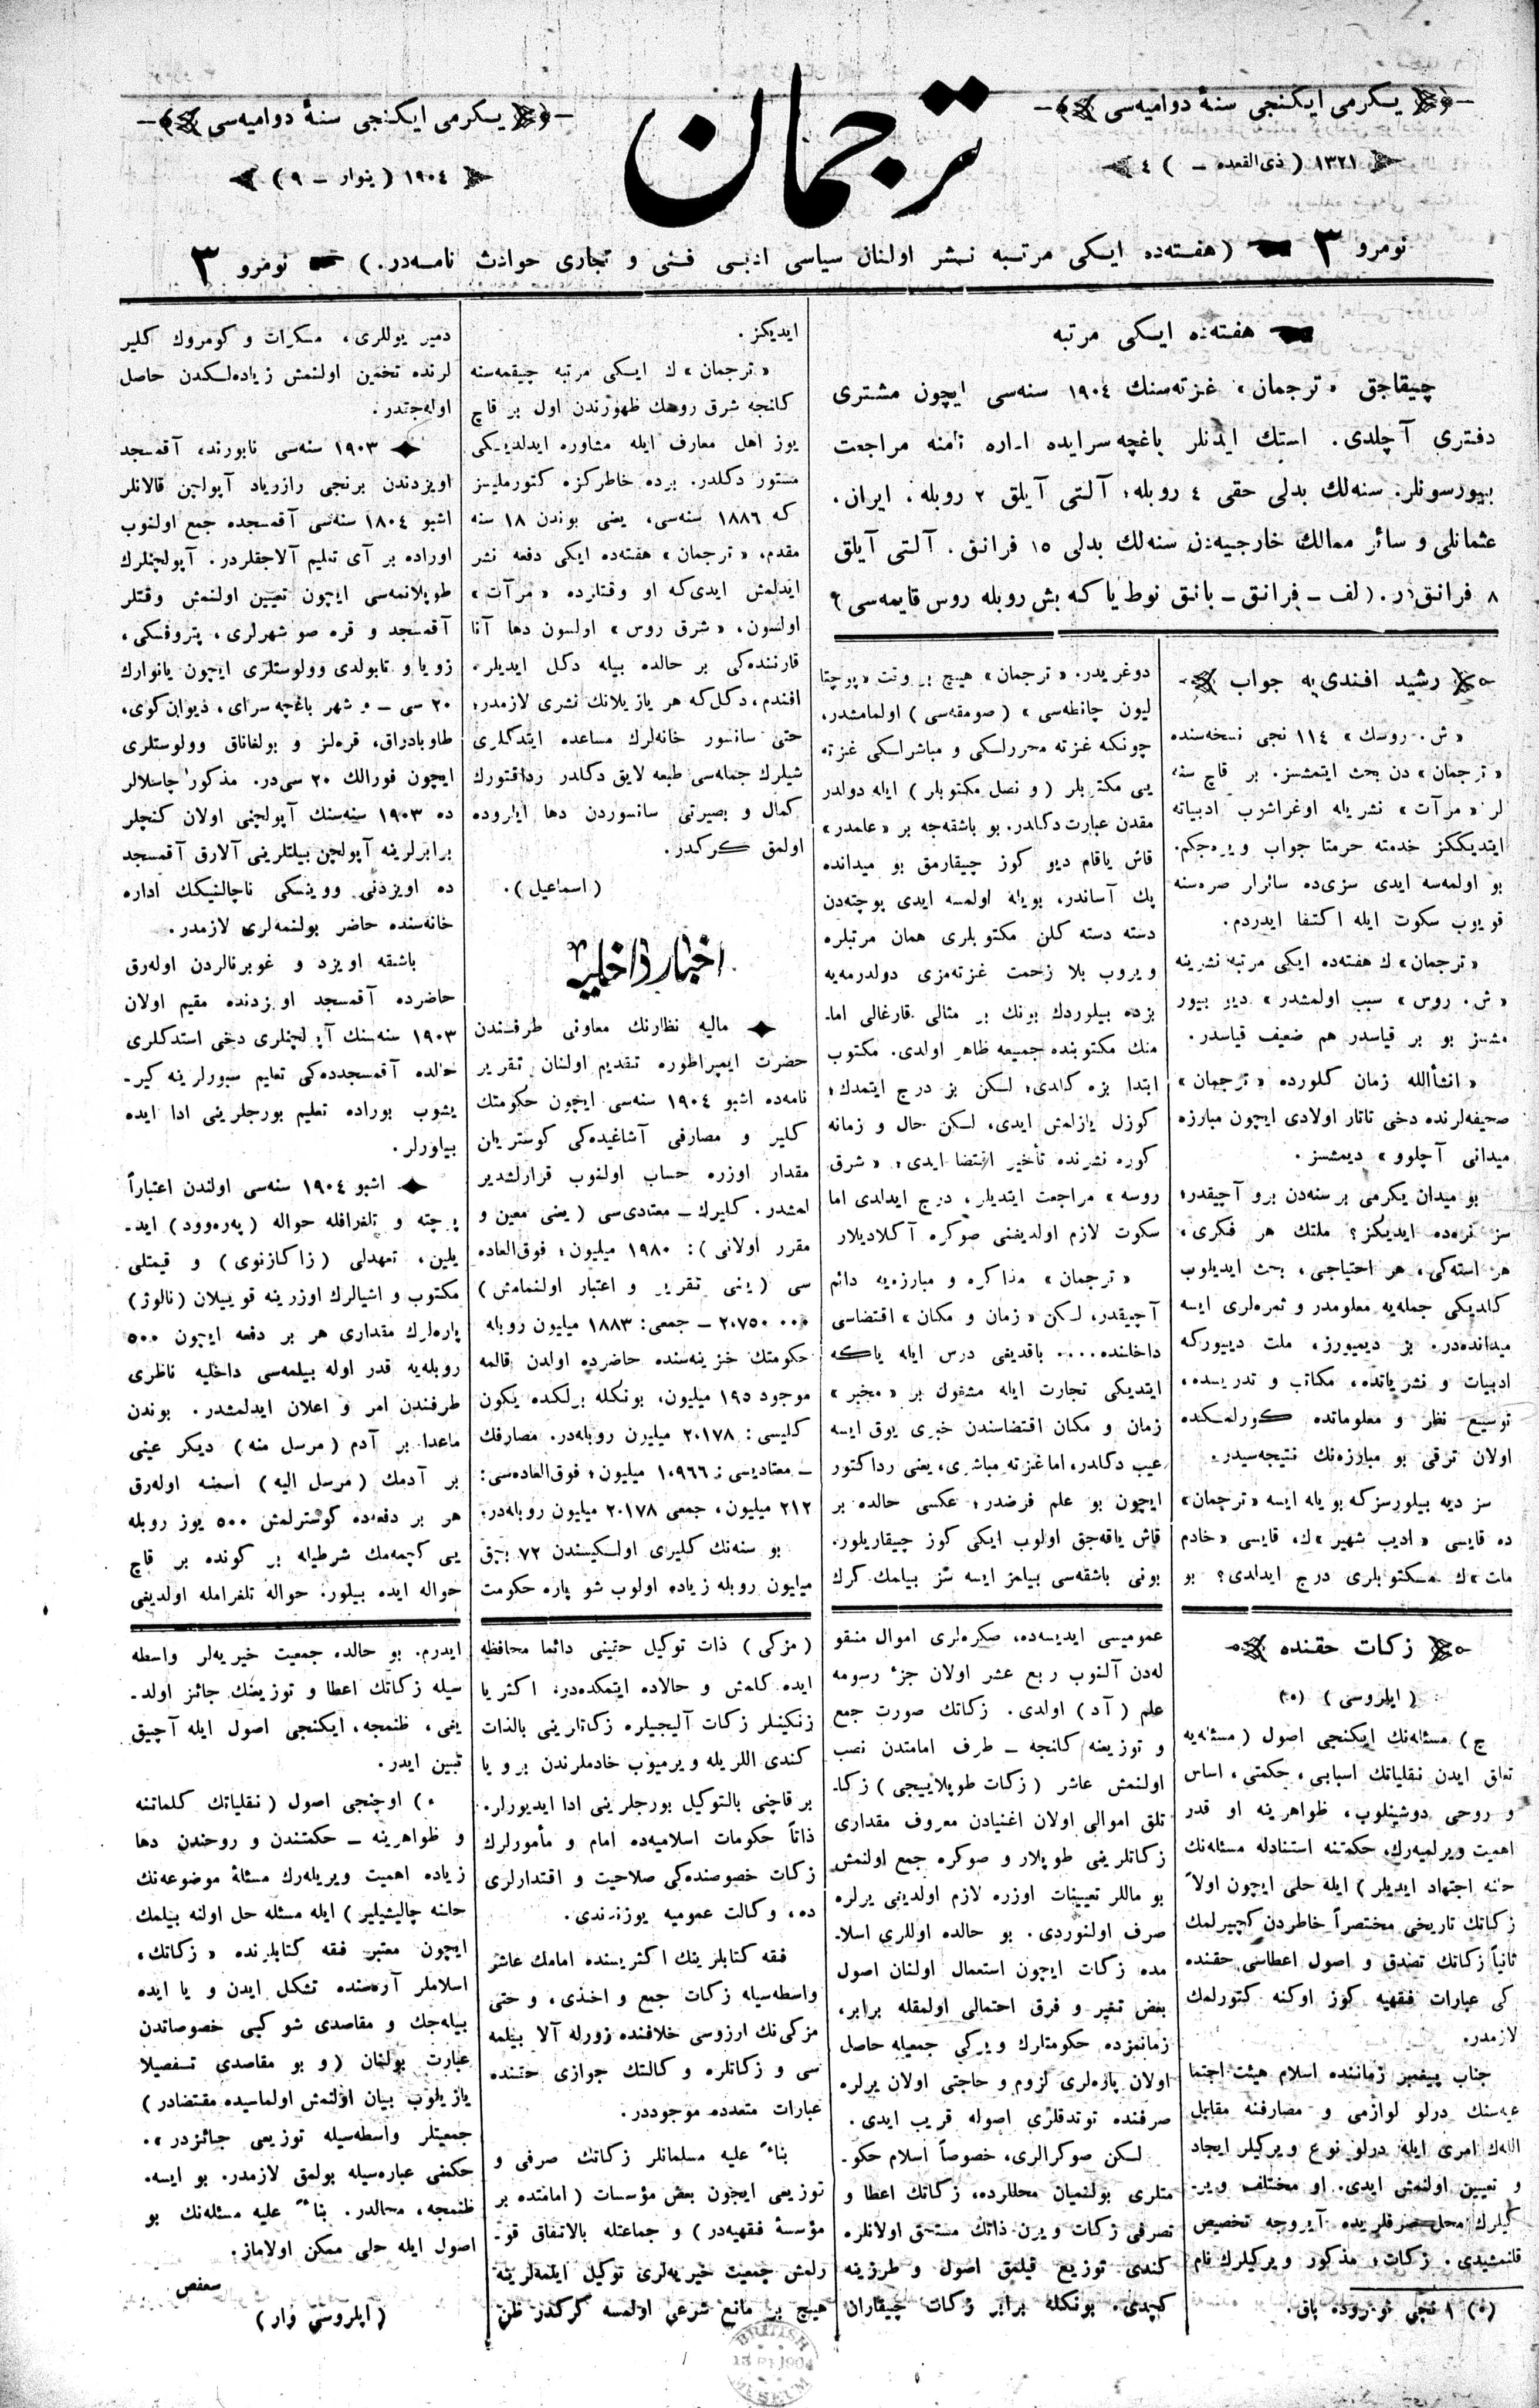 یكرمی ایكنجی سنۀ دوامیه‌سی
١٣٢١ (ذی‌القعده ـ ) ٤
ترجمان
یكرمی ایكنجی سنۀ دوامیه‌سی
١٩٠٤ (ینوار ـ ٩)
نومرو ٣ (هفته‌ده ایكی مرتبه نشر اولنان سیاسی ادبی فنی و تجاری حوادث نامه‌در.) نومرو ٣
هفته‌ده ایكی مرتبه
چیقاجق «ترجمان» غزته‌سنك ١٩٠٤ سنه‌سی ایچون مشتری
دفتری آچلدی. استك ایدنلر باغچه‌سرایده اداره نامنه مراجعت
بیورسونلر. سنه‌لك بدلی حقی ٤ روبله؛ آلتی آیلق ٢ روبله. ایران.
عثمانلی و سائر ممالك خارجیه‌دن سنه‌لك بدلی ١٥ فرانق. آلتی آیلق
٨ فرانقدر. (لف ـ فرانق ـ بانق نوط یا كه بش روبله روس قایمه‌سی)
رشید افندی‌یه جواب
«ش. روسك» ١١٤ نجی نسخه‌سنده
«ترجمان» دن بحث ایتمشسز. بر قاچ سنه
لر «مرآت» نشریله اوغراشوب ادبیاته
ایتدیككز خدمته حرمتا جواب ویره‌جكم.
بو اولمه‌سه ایدی سزی‌ده سائرلر صره‌سنه
قویوب سكوت ایله اكتفا ایدردم.
«ترجمان» ك هفته‌ده ایكی مرتبه نشرینه
«ش. روس» سبب اولمشدر» دیو بیور
مشسز بو بر قیاسدر هم ضعیف قیاسدر.
«انشأالله زمان كلورده «ترجمان»
صحیفه‌لرنده دخی تاتار اولادی ایچون مبارزه
میدانی آچلوو» دیمشسز.
بو میدان یكرمی بر سنه‌دن برو آچیقدر؛
سز نره‌ده ایدیكز؟ ملتك هر فكری،
هر استه‌كی، هر احتیاجی، بحث ایدیلوب
كلدیكی جمله‌یه معلومدر و ثمره‌لری ایسه
میدانده‌در. بز دیمیورز، ملت دییوركه
ادبیات و نشریاتده، مكاتب و تدریسده،
توسیع نظر و معلوماتده كورلمكده
اولان ترقی بو مبارزه‌نك نتیجه‌سیدر.
سز دیه بیلورسزكه بویله ایسه «ترجمان»
ده قایسی «ادیب شهیر» ك، قایسی «خادم
ملت» ك مكتوبلری درج ایدلدی؟ بو
دوغریدر. «ترجمان» هیچ بر وقت «پوچتا
لیون چانطه‌سی» (صومقه‌سی) اولمامشدر،
چونكه غزته محررلكی و مباشرلكی غزته
یی مكتوبلر (و نصل مكتوبلر) ایله دولدر
مقدن عبارت دكلدر. بو باشقه‌جه بر «علمدر»
قاش یاقام دیو كوز چیقارمق بو میدانده
پك آساندر، بویله اولمسه ایدی پوچته‌دن
دسته دسته كلن مكتوبلری همان مرتبلره
ویروب بلا زحمت غزته‌مزی دولدرمه‌یه
بزده بیلوردك بونك بر مثالی قارغالی امامـ
منك مكتوبنده جمیعه ظاهر اولدی. مكتوب
ابتدا بزه كلدی؛ لكن بز درج ایتمدك؛
كوزل یازلمش ایدی، لكن حال و زمانه
كوره نشرنده تأخیر اقتضا ایدی؛ «شرق
روسه» مراجعت ایتدیلر، درج ایدلدی اما
سكوت لازم اولدیغنی صوكره آكلادیلار
«ترجمان» مذاكره و مبارزه‌یه دائم
آچیقدر، لكن «زمان و مكان» اقتضاسی
داخلنده.... باقدیغی درس ایله یاكه
ایتدیكی تجارت ایله مشغول بر «مخبر»
زمان و مكان اقتضاسندن خبری یوق ایسه
عیب دكلدر، اما غزته مباشری، یعنی رداكتور
ایچون بو علم فرضدر؛ عكسی حالده بر
قاش یاقه‌جق اولوب ایكی كوز چیقاریلور.
بونی باشقه‌سی بیلمز ایسه سز بیلمك كرك
ایدیكز.
«ترجمان» ك ایكی مرتبه چیقمه‌سنه
كلنجه شرق روسك ظهورندن اول بر قاچ
یوز اهل معارف ایله مشاوره ایدلدیكی
مستور دكلدر. برده خاطركزه كتورملیسز
كه ١٨٨٦ سنه‌سی، یعنی بوندن ١٨ سنه
مقدم، «ترجمان» هفته‌ده ایكی دفعه نشر
ایدلمش ایدی‌كه او وقتلرده «مرآت»
اولسون، «شرق روس» اولسون دها آنا
قارننده‌كی بر حالده بیله دكل ایدیلر.
افندم، دكل‌كه هر یازیلانك نشری لازمدر؛
حتی سانسور خانه‌لرك مساعده ایتدكلری
شیلرك جمله‌سی طبعه لایق دكلدر رداقتورك
كمال و بصیرتی سانسوردن دها ایلروده
اولمق كركدر.
(اسماعیل).
اخبار داخلیه
مالیه نظارتك معاونی طرفندن
حضرت ایمپراطوره تقدیم اولنان تقریر
نامه‌ده اشبو ١٩٠٤ سنه‌سی ایچون حكومتك
كلیر و مصارفی آشاغیده‌كی كوستریلن
مقدار اوزره حساب اولنوب قرارلشدیر
لمشدر. كلیرك ـ معتادی‌سی (یعنی معین و
مقرر اولانی): ١٩٨٠ میلیون؛ فوق‌العاده
سی (یعنی تقریر و اعتبار اولنمامش)
ـ جمعی: ١٨٨٣ میلیون روبله
حكومتك خزینه‌سنده حاضرده اولدن قالمه
موجود ١٩٥ میلیون، بونكله برلكده یكون
كلیسی: ٢٠١٧٨ میلیون روبله‌در. مصارفك
ـ معتادیسی: ١٠٩٦٦ میلیون؛ فوق‌العاده‌سی:
٢١٢ میلیون، جمعی ٢٠١٧٨ میلیون روبله‌در.
بو سنه‌نك كلیری اولكیسندن ٧٢ بچق
میلیون روبله زیاده اولوب شو پاره حكومت
دمیر یوللری، مسكرات و كومروك كلیر
لرنده تخمین اولنمش زیاده‌لكدن حاصل
اوله‌جقدر.
١٩٠٣ سنه‌سی نابورنده، آقمسجد
اویزدندن برنجی رازریاد آپولچن قالانلر
اشبو ١٨٠٤ سنه‌سی آقمسجده جمع اولنوب
اوراده بر آی تعلیم آلاجقلردر. آپولچنلرك
طوپلانمه‌سی ایچون تعیین اولنمش وقتلر
آقمسجد و قره صو شهرلری، پتروفسكی،
زویا و تابولدی وولوستلری ایچون یانوارك
٢٠ سی ـ و شهر باغچه سرای، دیوان كوی،
طاوبادراق، قره‌لز و بولغاناق وولوستلری
ایچون فورالك ٢٠ سی‌در. مذكور چاسلالر
ده ١٩٠٣ سنه‌سنك آپولچنی اولان كنچلر
برابرلرینه آپولچن بیلتلرینی آلارق آقمسجد
ده اویزدنی ووینسكی ناچالنیكك اداره
خانه‌سنده حاضر بولنمه‌لری لازمدر.
باشقه اویزد و غوبرنالردن اوله‌رق
حاضرده آقمسجد اویزدنده مقیم اولان
١٩٠٣ سنه‌سنك آپولچنلری دخی استدكلری
حالده آقمسجدده‌كی تعلیم سبورلرینه كیرـ
یشوب بوراده تعلیم بورجلرینی ادا ایده
بیلورلر.
اشبو ١٩٠٤ سنه‌سی اولندن اعتباراً
پوچته و تلغرافله حواله (په‌ره‌وود) ایدـ
یلین، تعهدلی (زاكازنوی) و قیمتلی
مكتوب و اشیالرك اوزرینه قوییلان (نالوژ)
پاره‌لرك مقداری هر بر دفعه ایچون ٥٠٠
روبله‌یه قدر اوله بیلمه‌سی داخلیه ناظری
طرفندن امر و اعلان ایدلمشدر. بوندن
ماعدا بر آدم (مرسل منه) دیكر عینی
بر آدمك (مرسل الیه) اسمنه اوله‌رق
هر بر دفعه‌ده كوسترلمش ٥٠٠ یوز روبله
یی كچمه‌مك شرطیله بر كونده بر قاچ
حواله ایده بیلور. حواله تلغرامله اولدیغی
زكات حقنده
(ایلروسی) (٠)
ج) مسئله‌نك ایكنجی اصول (مسئله‌یه
تعلق ایدن نقلیاتك اسبابی، حكمتی، اساس
و روحی دوشینلوب، ظواهرینه او قدر
اهمیت ویرلمیه‌رك، حكمتنه استنادله مسئله‌نك
حلنه اجتهاد ایدیلر) ایله حلی ایچون اولاً
زكاتك تاریخی مختصراً خاطردن كچیرلمك
ثانیاً زكاتك تصدق و اصول اعطاسی حقنده
كی عبارات فقهیه كوز اوكنه كتورلمك
لازمدر.
جناب پیغمبر زماننده اسلام هیئت اجتما
عیه‌سنك درلو لوازمی و مصارفنه مقابل
اللهك امری ایله درلو نوع ویركیلر ایجاد
و تعیین اولنمش ایدی. او مختلف ویرـ
كیلرك محل صرفلریده آیروجه تخصیص
قلنمشیدی. زكات؛ مذكور ویركیلرك نام
(٠) ١ نجی نومروده باق.
عمومیسی ایدیسه‌ده، صكره‌لری اموال منقو
له‌دن آلنوب ربع عشر اولان جزء رسومه
علم (آد) اولدی. زكاتك صورت جمع
و توزیعنه كلنجه ـ طرف امامتدن نصب
اولنمش عاشر (زكات طوپلاییجی) زكاـ
تلق اموالی اولان اغنیادن معروف مقداری
زكاتلرینی طوپلار و صوكره جمع اولنمش
بو ماللر تعیینات اوزره لازم اولدینی یرلره
صرف اولنوردی. بو حالده اوللری اسلاـ
مده زكات ایچون استعمال اولنان اصول
بعض تغیر و فرق احتمالی اولمقله برابر،
زمانمزده حكومتلرك ویركی جمعیله حاصل
اولان پاره‌لری لزوم و حاجتی اولان یرلره
صرفنده توتدقلری اصوله قریب ایدی.
لكن صوكرالری، خصوصاً اسلام حكوـ
متلری بولنمیان محللرده، زكاتك اعطا و
تصرفی زكات ویرن ذاتك مستحق اولانلره
كندی توزیع قیلمق اصول و طرزینه
كچدی. بونكله برابر زكات چیقاران
(مزكی) ذات توكیل حقینی دائما محافظه
ایده كلمش و حالاده ایتمكده‌در، اكثریا
زنكینلر زكات آلیجیلره زكاتلرینی بالذات
كندی اللریله ویرمیوب خادملرندن برو یا
بر قاچنی بالتوكیل بورجلرینی ادا ایدیورلر.
ذاتاً حكومات اسلامیه‌ده امام و مأمورلرك
زكات خصوصنده‌كی صلاحیت و اقتدارلری
ده، وكالت عمومیه یوزندندی.
فقه كتابلرینك اكثریسنده امامك عاشر
واسطه‌سیله زكات جمع و اخذی، و حتی
مزكی‌نك ارزوسی خلافنده زورله آلا بیلمه
سی و زكاتلره وكالتك جوازی حقنده
عبارات متعدده موجوددر.
بناءً علیه مسلمانلر زكاتك صرفی و
توزیعی ایچون بعض مؤسسات (امامتده بر
مؤسسۀ فقهیه‌در) و جماعتله بالاتفاق قوـ
رلمش جمعیت خیریه‌لری توكیل ایلمه‌لرینه
هیچ بر مانع شرعی اولمسه كركدر ظن
ایدرم. بو حالده جمعیت خیریه‌لر واسطه
سیله زكاتك اعطا و توزیعنك جائز اولدـ
یغی، ظنمجه، ایكنجی اصول ایله آچیق
تبین ایدر.
) اوچنجی اصول (نقلیاتك كلماتنه
و ظواهرینه ـ حكمتندن و روحندن دها
زیاده اهمیت ویریله‌رك مسئلۀ موضوعه‌نك
حلنه چالیشیلیر) ایله مسئله حل اولنه بیلمك
ایچون معتبر فقه كتابلرنده «زكاتك،
اسلاملر آره‌سنده تشكل ایدن و یا ایده
بیله‌جك و مقاصدی شو كبی خصوصاتدن
عبارت بولنان (و بو مقاصدی تفصیلا
یازیلوب بیان اولنمش اولماسیده مقتضادر)
جمعیتلر واسطه‌سیله توزیعی جائزدر».
حكمنی عباره‌سیله بولمق لازمدر. بو ایسه،
ظنمجه، محالدر. بناءً علیه مسئله‌نك بو
اصول ایله حلی ممكن اولاماز.
(ایلروسی وار)
BRITISH
MUSEUM